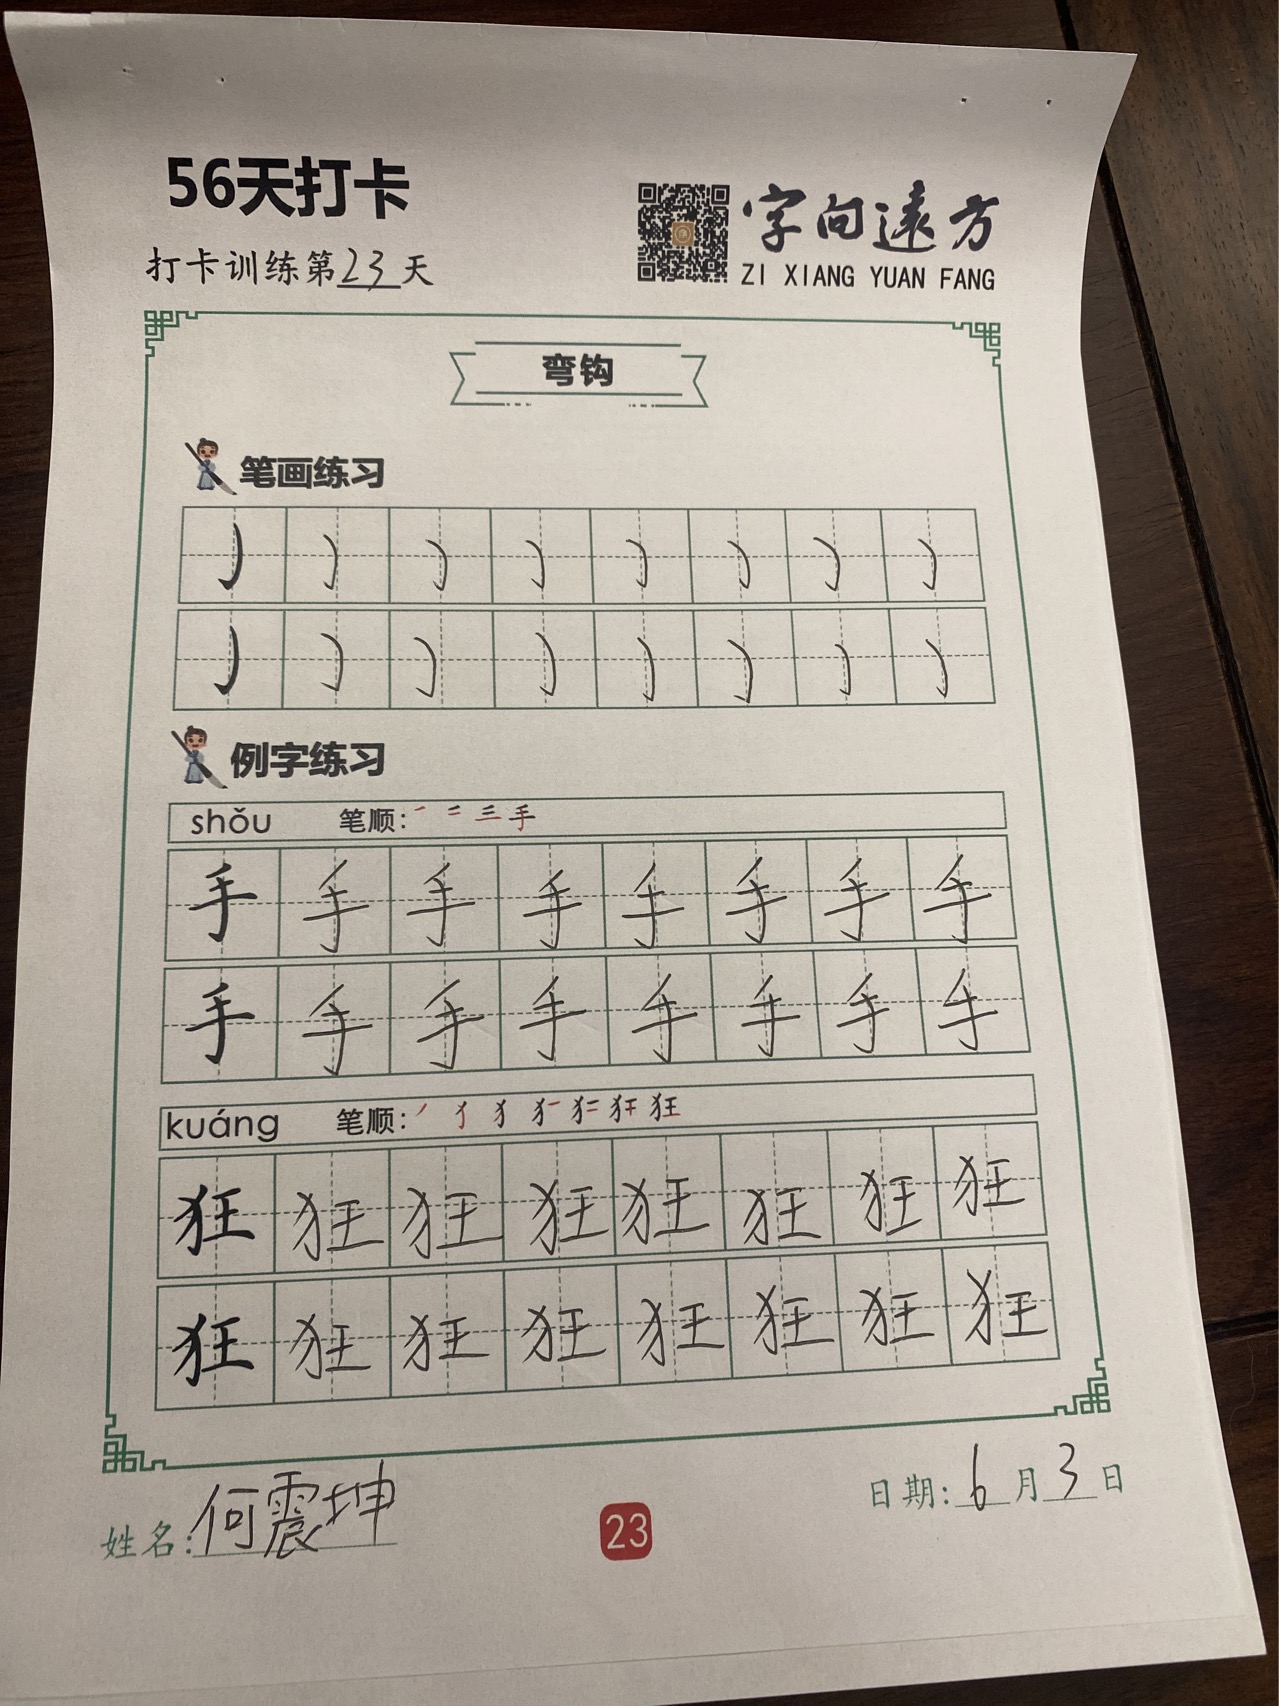 56天打卡
打卡训练第23天
字向遠方
ZI XIANG YUAN FANG
弯钩
笔画练习
㇁ ㇁ ㇁ ㇁ ㇁ ㇁ ㇁ ㇁
㇁ ㇁ ㇁ ㇁ ㇁ ㇁ ㇁ ㇁
例字练习
shǒu 笔顺: ㇀ 二 三 手
手 手 手 手 手 手 手 手
手 手 手 手 手 手 手 手
kuáng 笔顺: ㇒ 犭 犭 犭 犭 犴 狂
狂 狂 狂 狂 狂 狂 狂 狂
狂 狂 狂 狂 狂 狂 狂 狂
姓名:何震坤
23
日期:6月3日